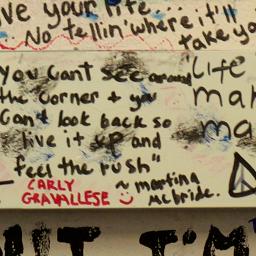 ve your life....
No tellin' where it'll
take yo
"You cant see around
the corner + you
Cant look back so
live it up and
feel the rush"
~ martina
mcbride.
CARLY
GRAVALLESE
"Life
ma
ma
I'M